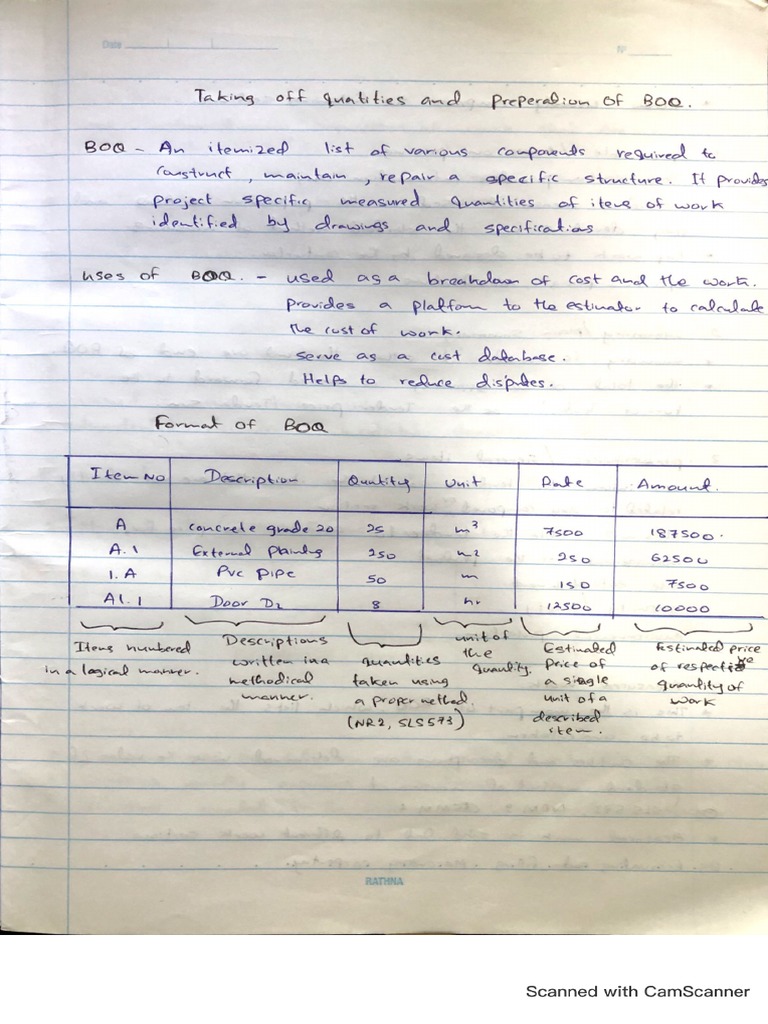 Date
Nº
Taking off quatities and preperation of BOQ.
BOQ - An itemized list of various components required to
construct, maintain, repair a specific structure. It provides
project specific measured quantities of items of work
identified by drawings and specifications
uses of BOQ. - used as a breakdown of cost and the work.
provides a platform to the estimator to calculate
the cost of work.
serve as a cost database.
Helps to reduce disputes.
Format of BOQ
Item No Description Quntity Unit Rate Amount.
A concrete grade 20 25 m³ 7500 187500.
A.1 External Planting 250 m2 250 62500
1.A Pvc pipe 50 m 150 7500
A1.1 Door D2 8 nr 12500 10000
Items numbered
in a logical manner.
Descriptions
written in a
methodical
manner.
quantities
taken using
a proper method.
(NR2, SLS573)
unit of
the
quantity.
Estimated
price of
a single
unit of a
described
item.
Estimated price
of respective
quantity of
work
RATHNA
Scanned with CamScanner